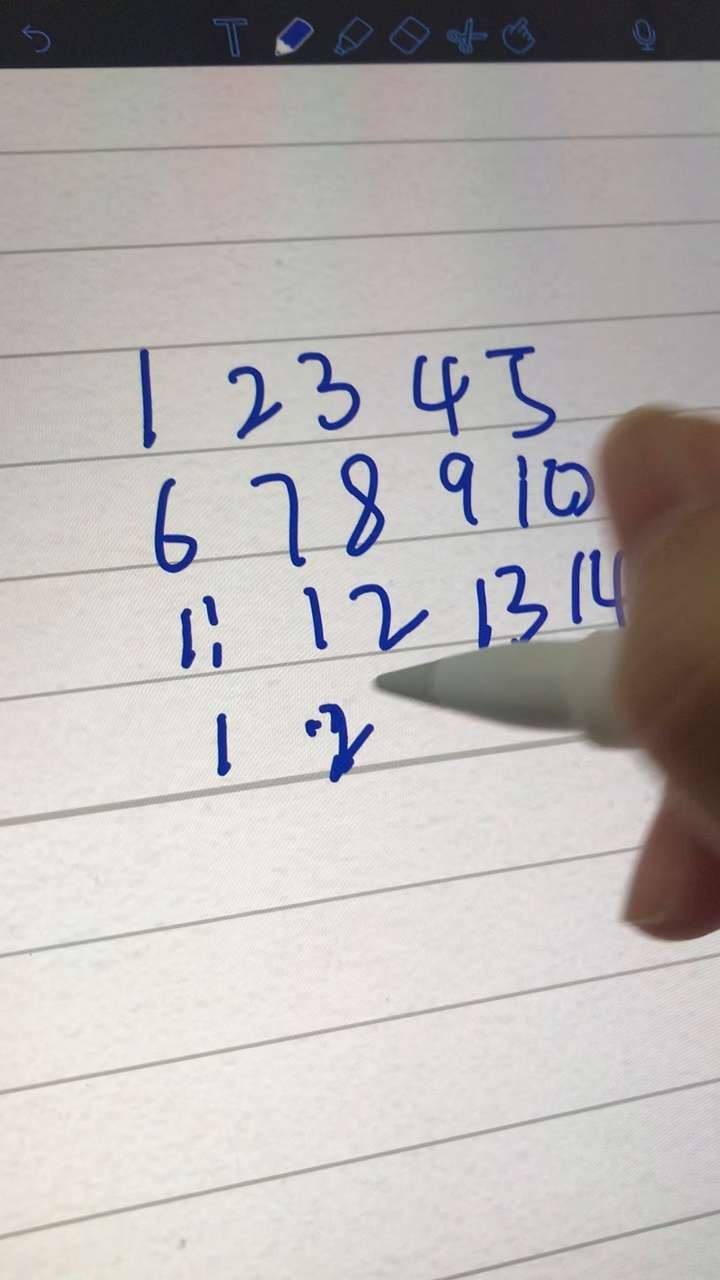 1 2 3 4 5
6 7 8 9 10
11 12 13 14
1 2